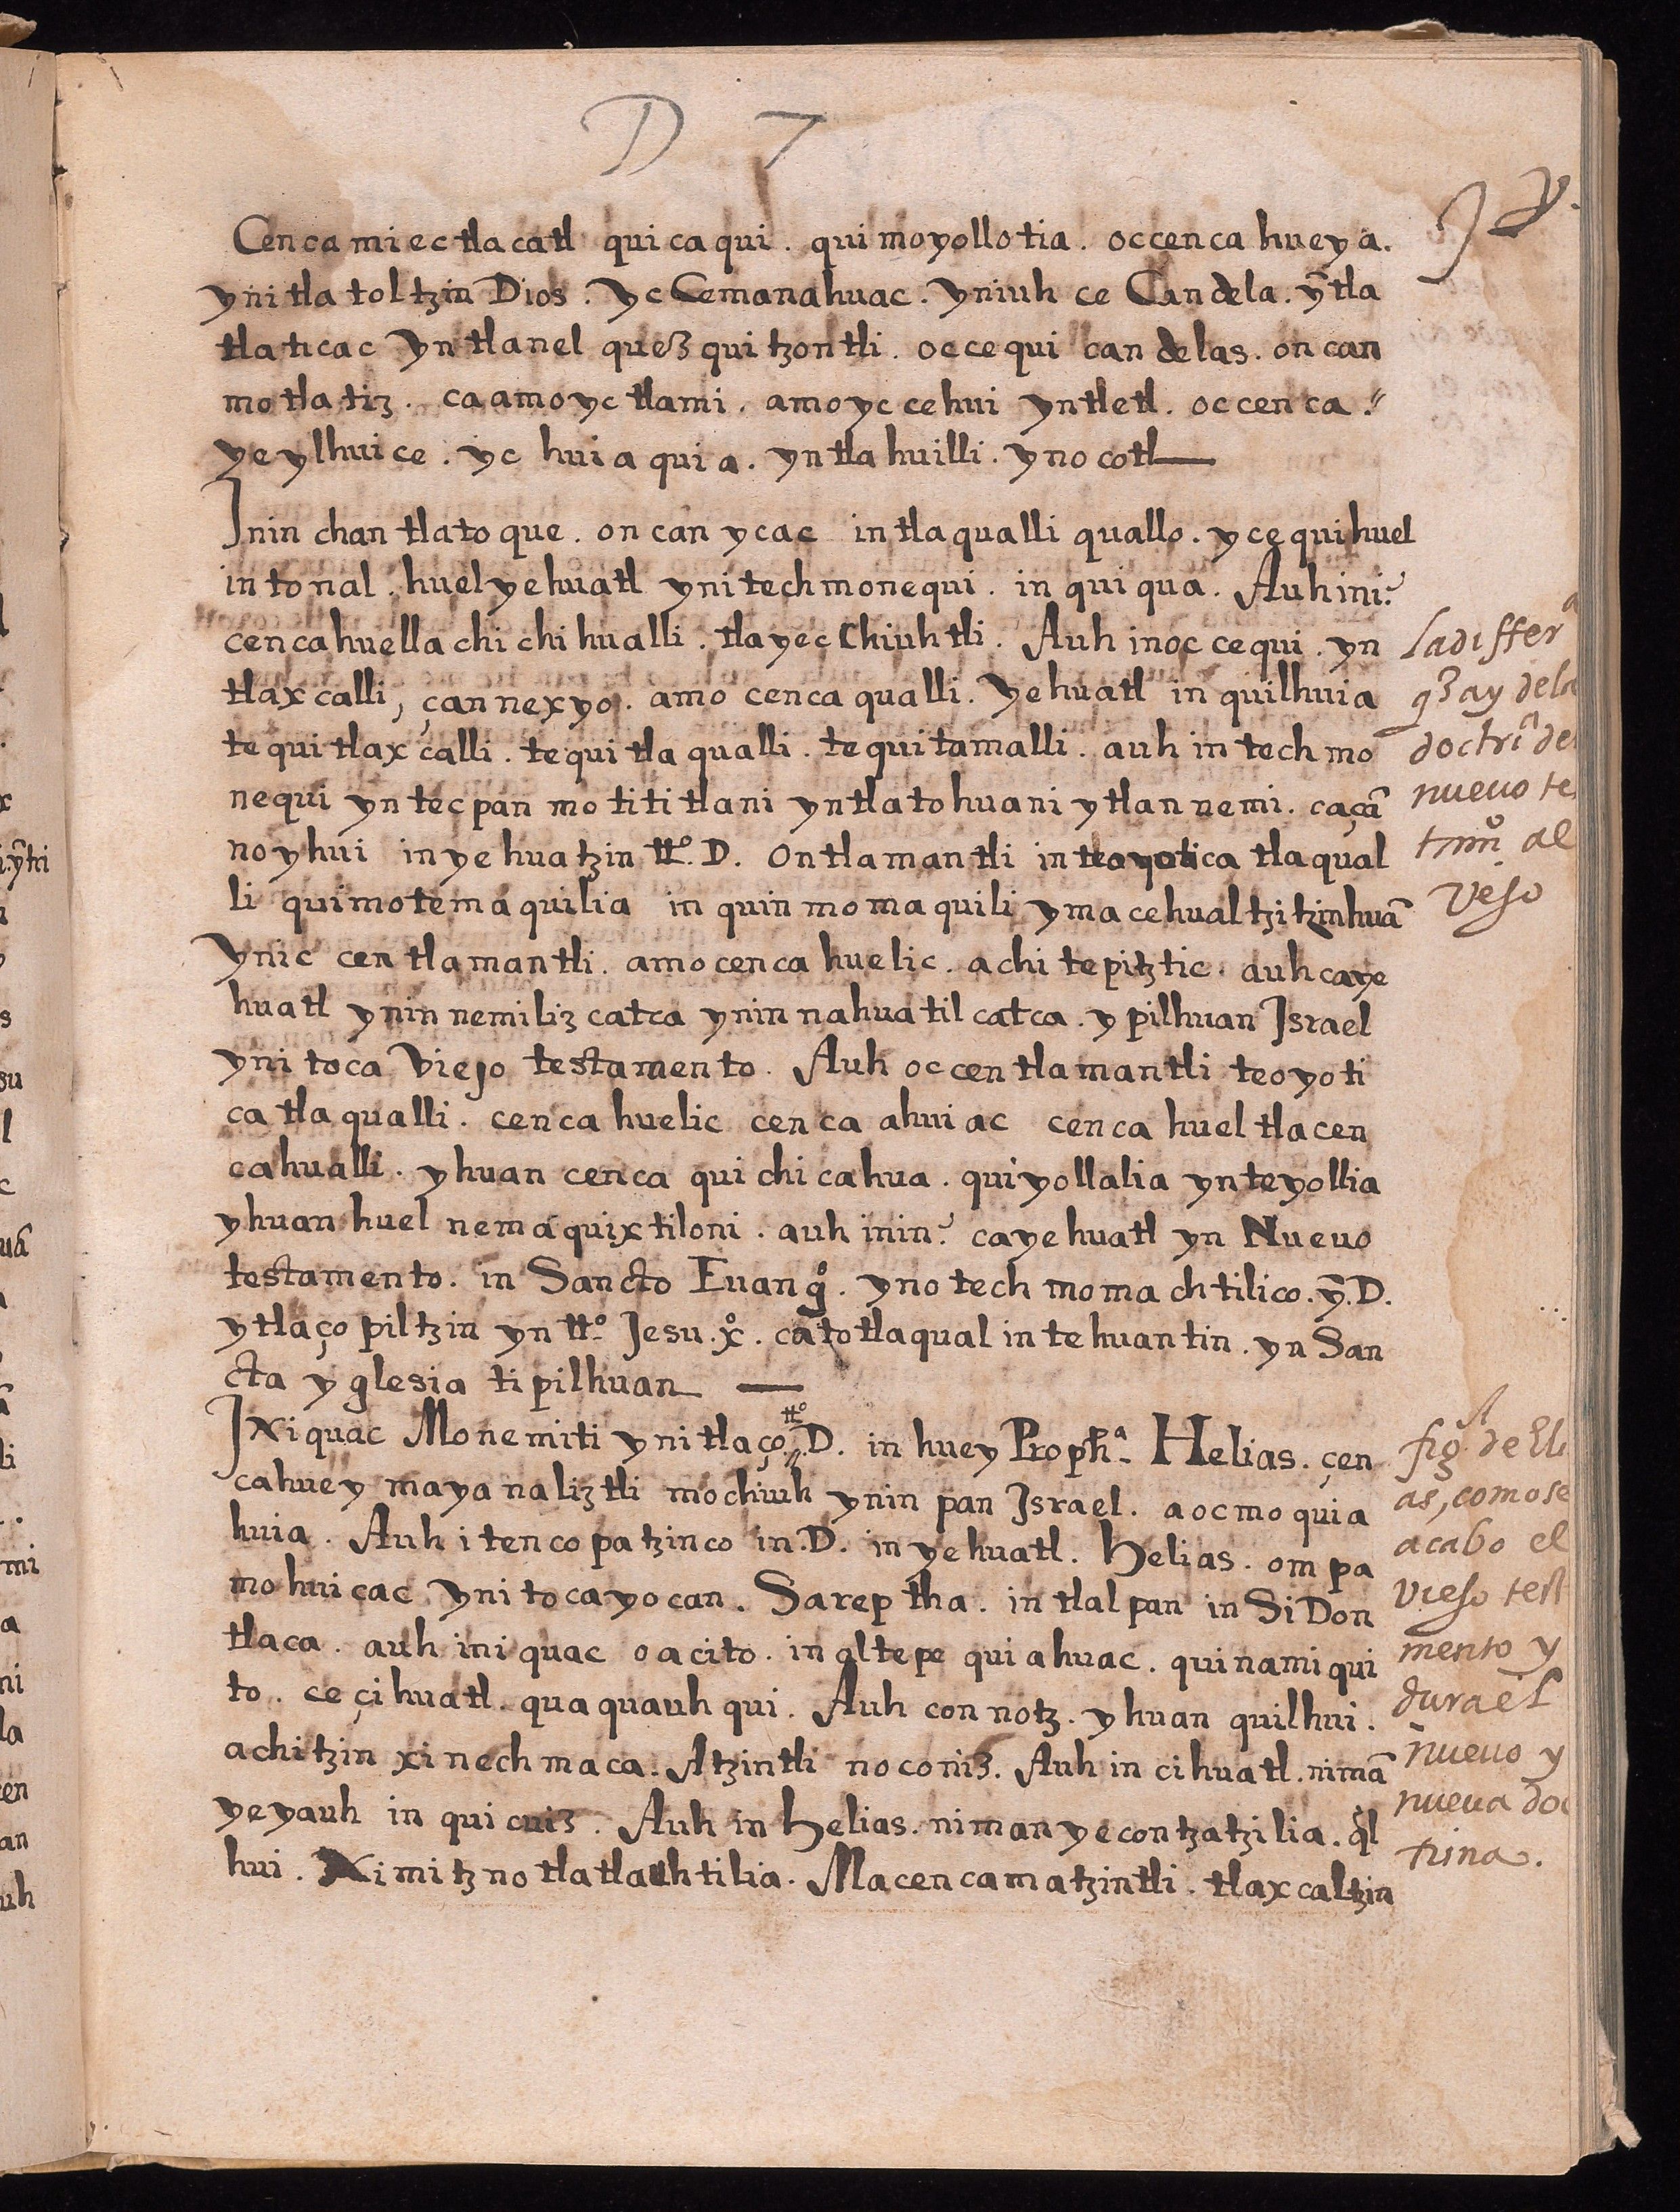 D 7
Cenca miec tlacatl quicaqui. quimoyollotia. occenca hueya.
ynitlatoltzin Dios. yc Cemanahuac. yniuh ce Candela. ȳtla
tlaticac yntlanel quezquitzontli. occequi candelas. oncan
motlatiz. caamoyc tlami. amoyccehui yntletl. occenca.
yeylhuice. yc huiaquia. yntlahuilli. ynocotl
Inin chan tlatoque. oncan ycac intlaqualli quallo. ycequihuel
intonal. huelyehuatl ynitechmonequi. in quiqua. Auhini?
cencahuellachichihualli. tlayecchiuhtli. Auh inoccequi. yn
tlaxcalli, çannexyo. amo cenca qualli. yehuatl in quilhuia
tequitlaxcalli. tequitlaqualli. tequitamalli. auh intechmo
nequi yn tecpan motititlani yntlatohuani ytlannemi. caçã
noyhui inyehuatzin tt.º D. Ontlamantli inteoyotica tlaqual
li quimotemáquilia in quinmomaquili ymacehualtzitzinhuã
ynic centlamantli. amocenca huelic. achi tepitztic. auhcaye
huatl ynin nemiliz catca ynin nahuatil catca. ypilhuan Israel
ynitoca Viejo testamento. Auh occentlamantli teoyoti
catlaqualli. cenca huelic cenca ahuiac cenca hueltlacen
cahualli. yhuan cenca quichicahua. quiyollalia ynteyollia
yhuan huel nemáquixtiloni. auh inin? cayehuatl yn Nueuo
testamento. in Sancto Euangº. ynotechmomachtilico. ȳ.D.
ytlaçopiltzin yn tt.º Jesu.xº. catotlaqual intehuantin. yn San
cta yglesia tipilhuan
Ixiquac Monemiti ynitlaço. tt.º D. in huey Prophª. Helias. çen
cahuey mayanaliztli mochiuh ynin pan Israel. aocmo quia
huia. Auh itencopatzinco in.D. inyehuatl. Helias. ompa
mohuicac ynitocayocan. Sareptha. intlalpan in SiDon
tlaca. auh iniquac oacito. inaltepe quiahuac. quinamiqui
to. ce çihuatl. quaquauhqui. Auh connotz. yhuan quilhui.
achitzin xinechmaca. Atzintli noconiz. Auh in cihuatl. nimã
yeyauh in quicuiz. Auh in Helias. nimanyecontzatzilia. ql
hui. Ximitznotlatlauhtilia. Macencamatzintli. tlaxcaltzin
ladifferª
q̃ ay dela
doctrĩ de
nueuo te
tmº al
Vejo
figª de Eli
as, comose
acabo el
viejo test
mento y
durael
nueuo y
nueua doc
trina.